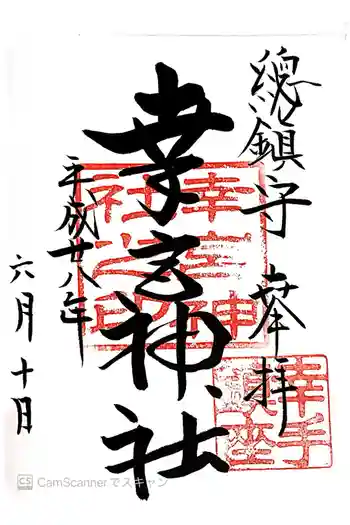 總鎮守 奉拝
幸宮神社
平成廿八年
六月十日
幸宮神社之印
幸手鎮座
CS CamScannerでスキャン